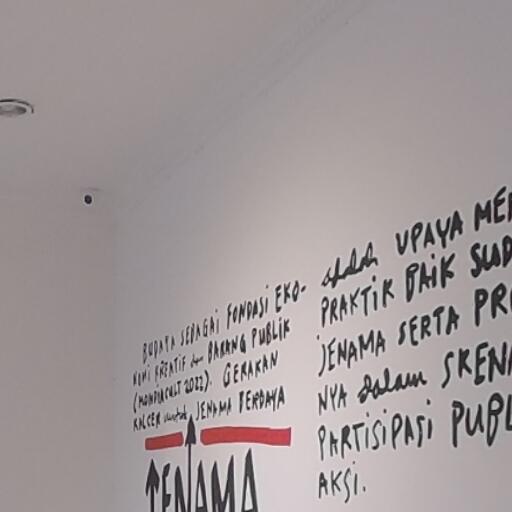 BUDAYA SEBAGAI FONDASI EKO-
NOMI KREATIF dan BARANG PUBLIK
(MONDIACULT 2022). GERAKAN
KALCER untuk JENAMA BERDAYA
JENAMA
adalah UPAYA ME
PRAKTIK BAIK SUD
JENAMA SERTA PR
NYA dalam SKENA
PARTISIPASI PUBL
AKSI.